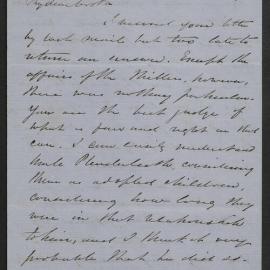 My dear brother
I received your letter
by last mail but two late to
return an answer. Except the
affairs of the Millers, however,
there were nothing particular.
You are the best judge of
what is fair and right in that
case. I can easily understand
Uncle considering
them as adopted children,
considering how long they
were in that relationship
to him, and I think it very
probable that he did as-